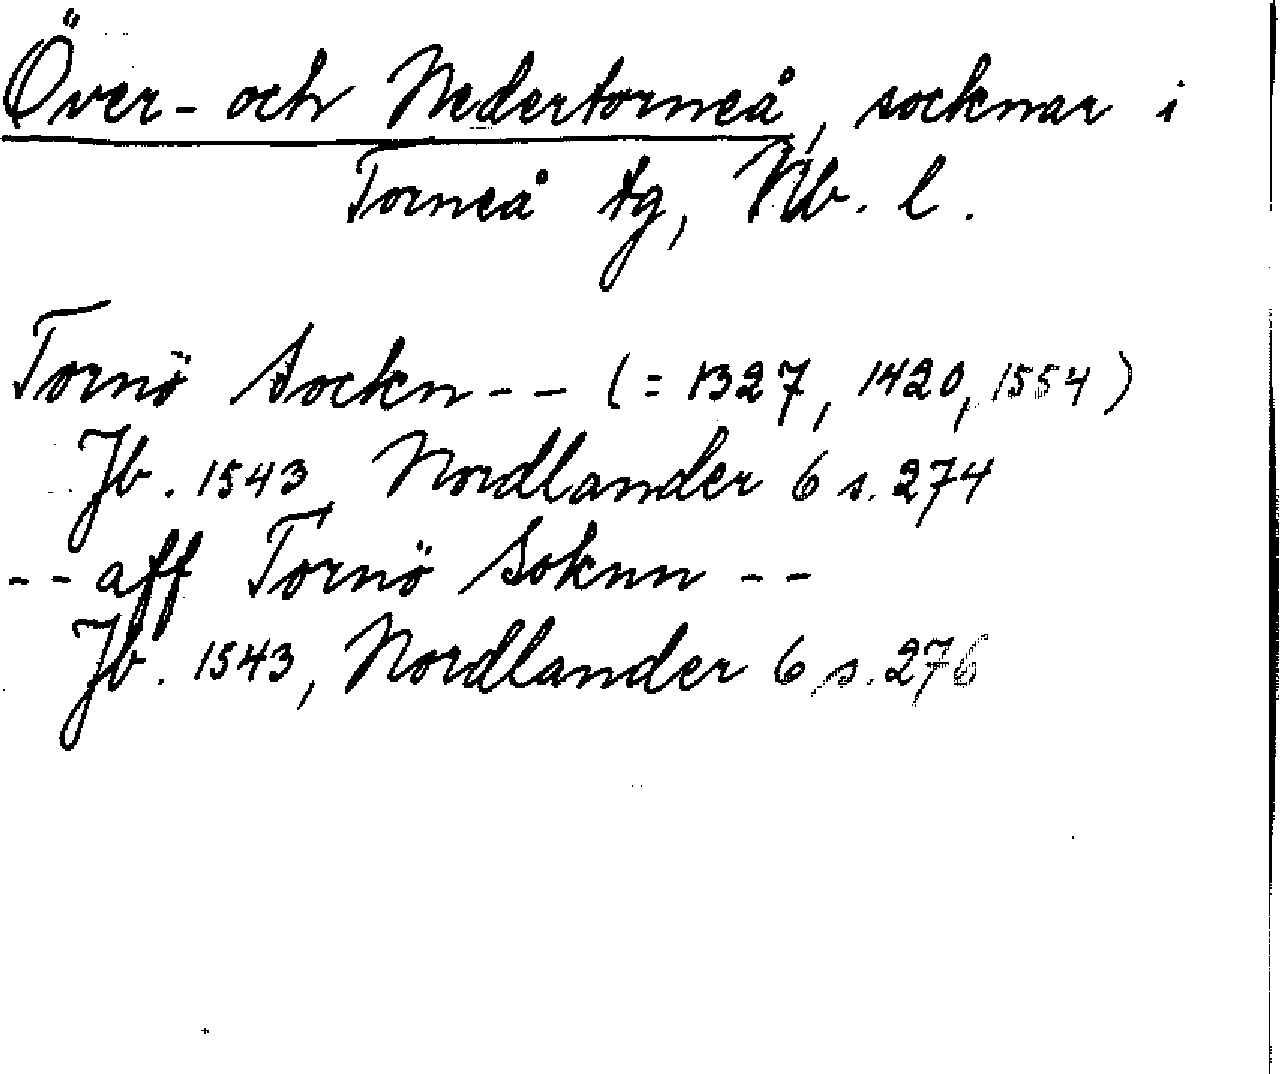 Över- och Nedertorneå, socknar i
Torneå tg, Nb. l.
Tornö Sockn - - (= 1327, 1420, 1554)
Jb. 1543, Nordlander 6 s. 274
- - aff Tornö Soknn - -
Jb. 1543, Nordlander 6 s. 276